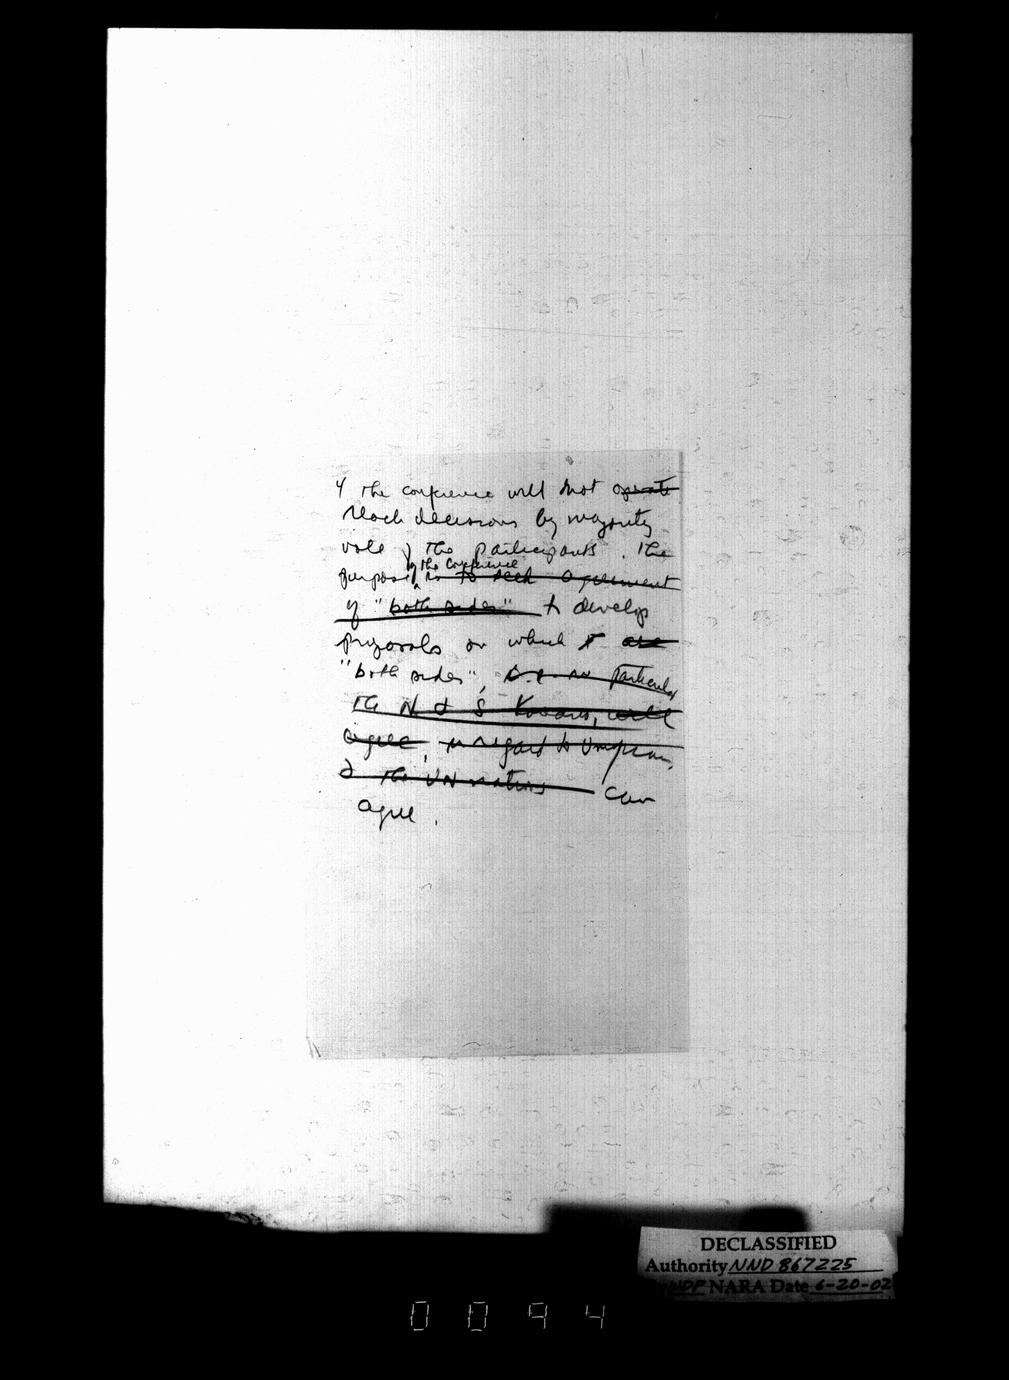 4 The conference will not operate
reach decisions by majority
vote of the participants. The
of the Conference
purpose is to seek agreement
of "both sides" to develop
proposals on which are
"both sides", i.e. in particular
the N & S Koreans, will
agree, in regard to
& the UN nations can
agree.
DECLASSIFIED
Authority NND 867225
NARA Date 6-20-02
0094